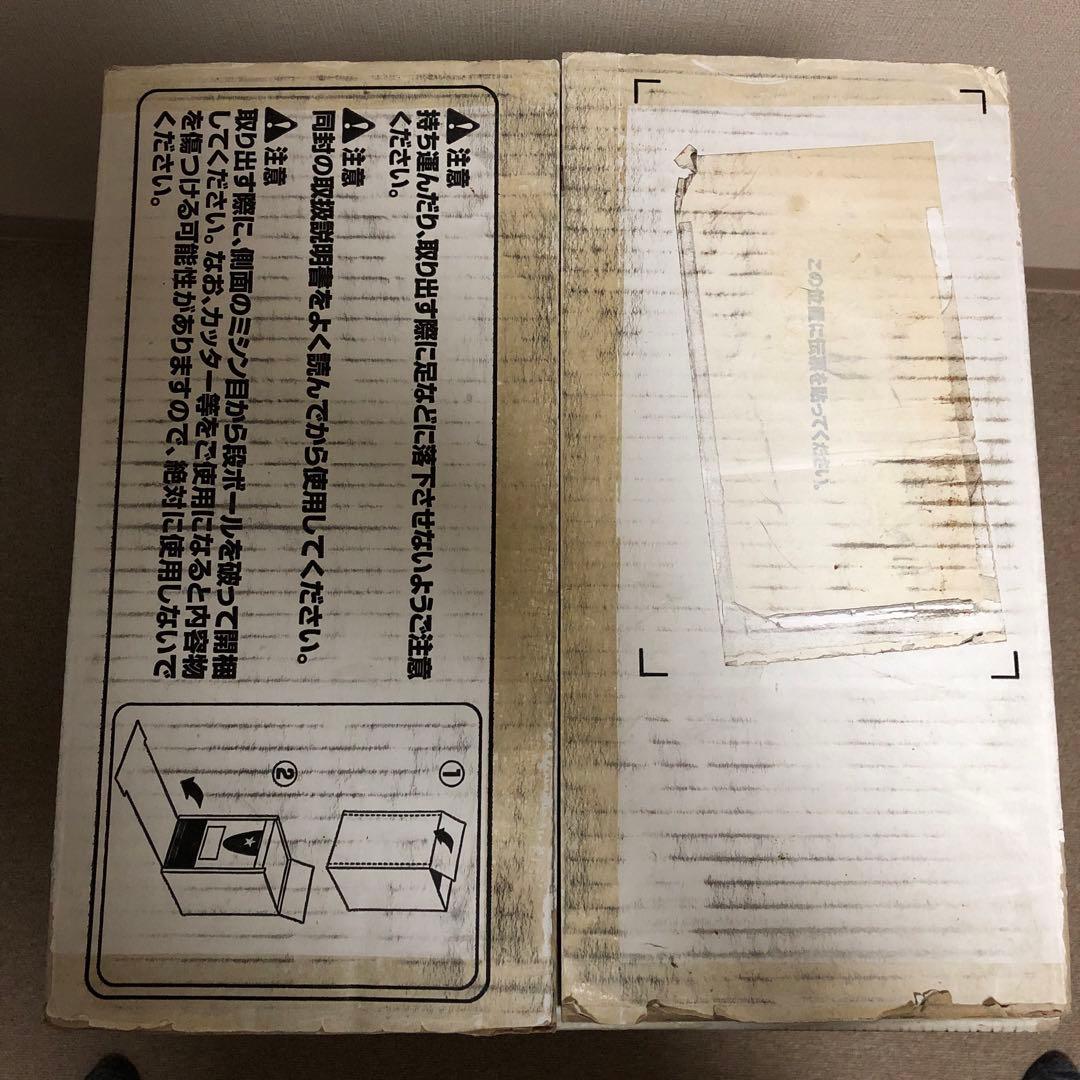 注意
持ち運んだり、取り出す際に足などに落下させないようご注意
ください。
注意
同封の取扱説明書をよく読んでから使用してください。
注意
取り出す際に、側面のミシン目から段ボールを破って開梱
してください。なお、カッター等をご使用になると内容物
を傷つける可能性がありますので、絶対に使用しないで
ください。
①
②
この位置に伝票を貼ってください。